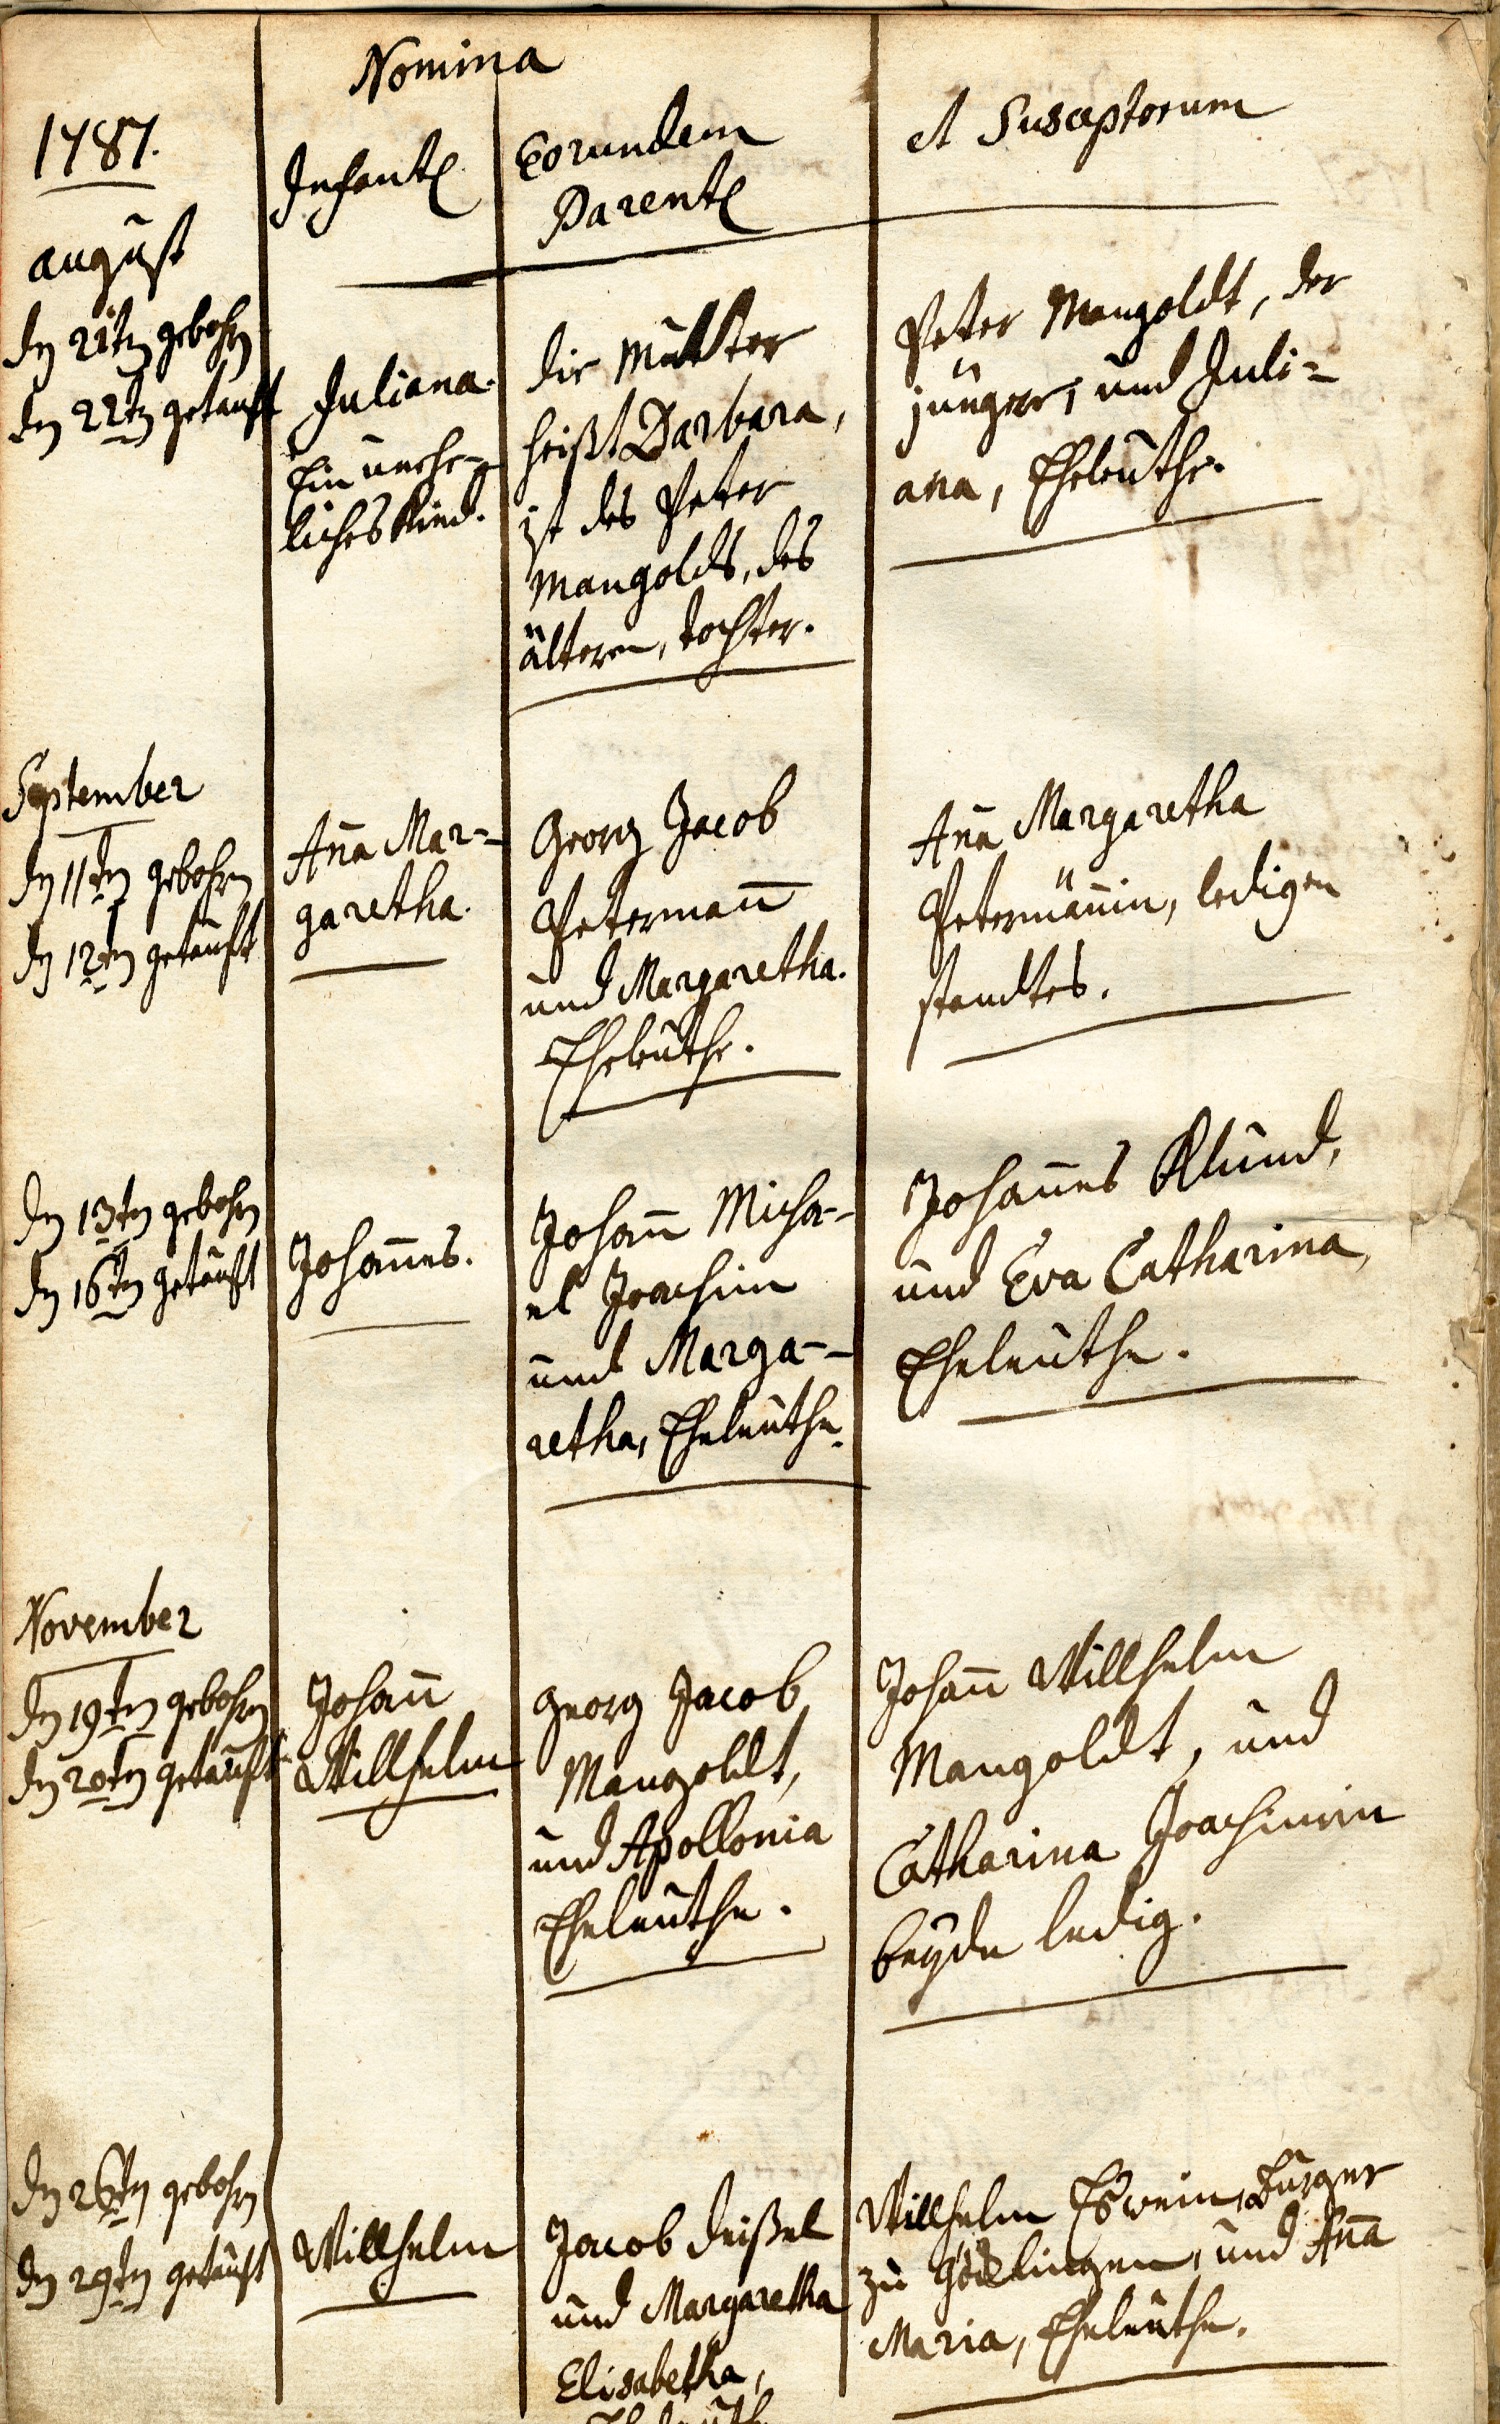 Nomina
1787.
Infant.
Eorundem
Parent.
et Susceptorum
august
dn 21tn gebohrn
dn 22tn getauft
Juliana.
Ein unehe-
liches Kind.
die Mutter
heißt Barbara,
ist des Peter
Mangolds, des
älteren, tochter.
Peter Mangoldt, der
jünger, und Juli=
ana, Eheleuthe.
September
dn 11tn gebohrn
dn 12tn getauft
Ana Mar-
garetha.
Georg Jacob
Petermann
und Margaretha.
Eheleuthe.
Ana Margaretha
Petermännin, ledigen
standtes.
dn 13tn gebohrn
dn 16tn getauft
Johannes.
Johann Micha-
el Joachim
und Marga-
retha, Eheleuthe.
Johannes Klund,
und Eva Catharina,
Eheleuthe.
November
dn 19tn gebohrn
dn 20tn getauft
Johann
Willhelm
Georg Jacob
Mangoldt,
und Apollonia
Eheleuthe.
Johann Willhelm
Mangoldt, und
Catharina Joachimin
beyde ledig.
dn 26tn gebohrn
dn 29tn getauft
Willhelm
Jacob Deißel
und Margaretha
Elisabetha,
Eheleuthe
Willhelm Eßwein, Bürger
zu Göcklingen, und Ana
Maria, Eheleuthe.